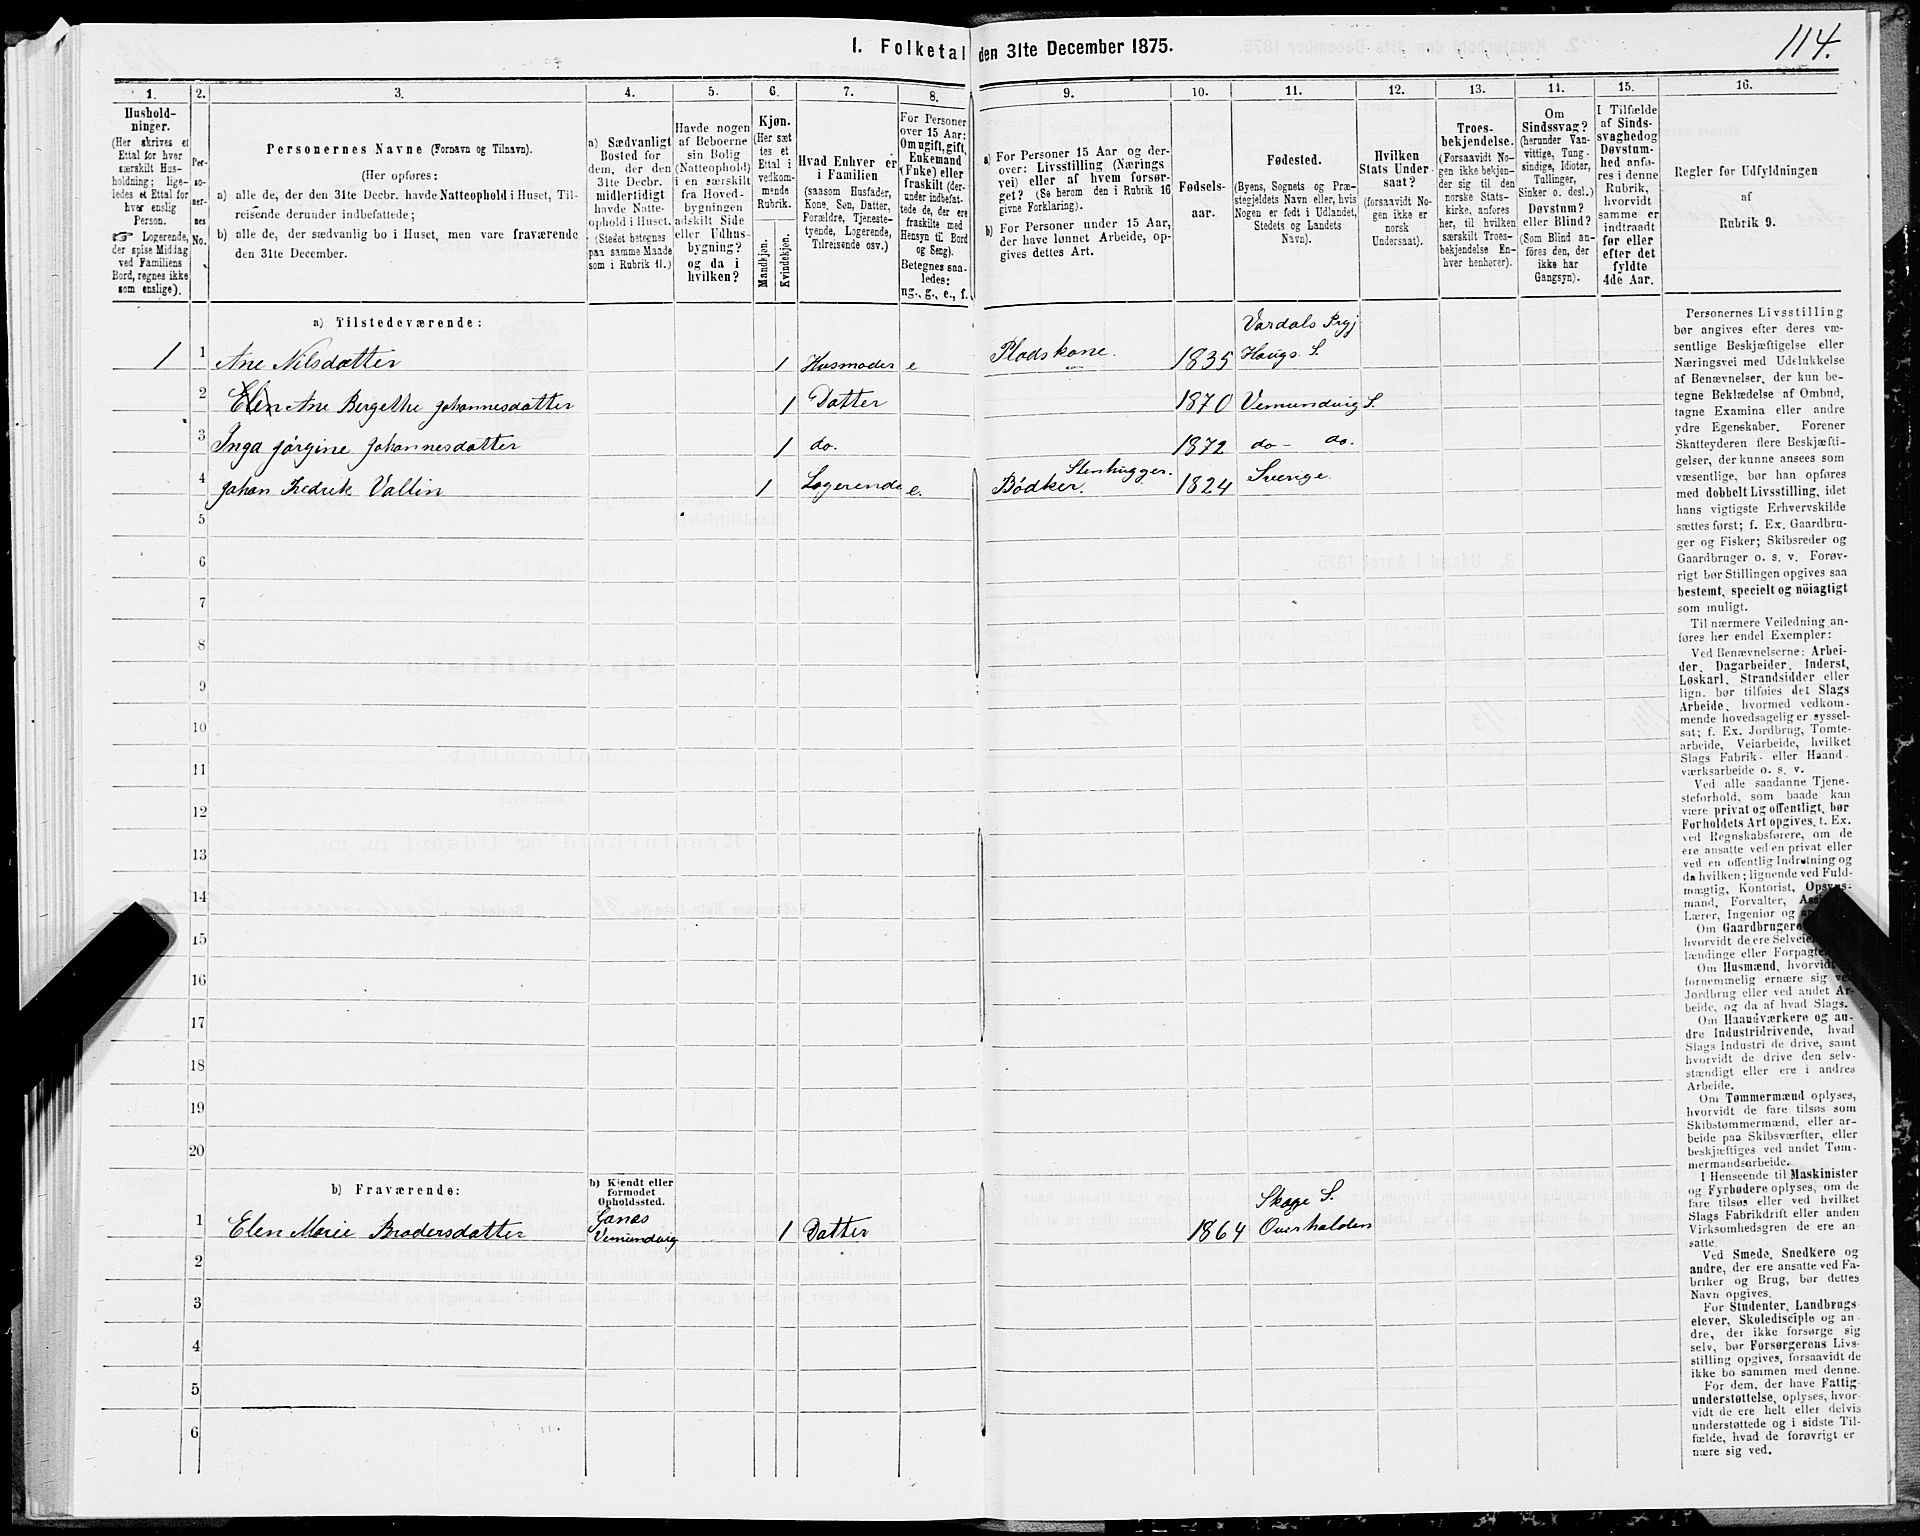 114.
1. Folketal den 31te December 1875.
1. 2. 3. 4. 5. 6. 7. 8. 9. 10. 11. 12. 13. 14. 15. 16.
Hushold-
ninger.
(Her skrives et
Ettal for hver
særskilt Hus-
holdning; lige-
ledes et Ettal for
hver enslig
Person.
☞ Logerende,
der spise Middag
ved Familiens
Bord, regnes ikke
som enslige).
Per-
so-
ner-
nes
No.
Personernes Navne (Fornavn og Tilnavn).
(Her opføres:
a) alle de, der den 31te Decbr. havde Natteophold i Huset, Til-
reisende derunder indbefattede;
b) alle de, der sædvanlig bo i Huset, men vare fraværende
den 31te December.
a) Sædvanligt
Bosted for
dem, der den
31te Decbr.
midlertidigt
havde Natte-
ophold i Huset.
(Stedet betegnes
paa samme Maade
som i Rubrik 11.)
Havde nogen
af Beboerne
sin Bolig
(Natteophold)
i en særskilt
fra Hoved-
bygningen
adskilt Side
eller Udhus-
bygning?
og da i
hvilken?
Kjøn.
(Her sæt
tes et
Ettal i
vedkom-
mende
Rubrik.
Mandkjøn.
Kvindekjøn.
Hvad Enhver er
i Familien
(saasom Husfader,
Kone, Søn, Datter,
Forældre, Tjeneste-
tyende, Logerende,
Tilreisende osv.)
For Personer
over 15 Aar:
Om ugift, gift,
Enkemand
(Enke) eller
fraskilt (der-
under indbefat-
tede de, der ere
fraskilte med
Hensyn til Bord
og Seng).
Betegnes saa-
ledes:
ug., g., e., f.
a) For Personer 15 Aar og der-
over: Livsstilling (Nærings
vei) eller af hvem forsør-
get? (Se herom den i Rubrik 16
givne Forklaring).
b) For Personer under 15 Aar,
der have lønnet Arbeide, op-
gives dettes Art.
Fødsels-
aar.
Fødested.
(Byens, Sognets og Præ-
stegjeldets Navn eller, hvis
Nogen er født i Udlandet,
Stedets og Landets
Navn).
Hvilken
Stats Under-
saat?
(forsaavidt No-
gen ikke er
norsk
Undersaat).
Troes-
bekjendelse.
(Forsaavidt No-
gen ikke bekjen-
der sig til den
norske Stats-
kirke, anføres
her, til hvilken
særskilt Troes-
bekjendelse En-
hver henhører).
Om
Sindssvag?
(herunder Van-
vittige, Tung-
sindige, Idioter,
Tullinger,
Sinker o. desl.)
Døvstum?
eller Blind?
(Som Blind an-
føres den, der
ikke har
Gangsyn).
I Tilfælde
af Sinds-
svaghed og
Døvstum-
hed anfø-
res i denne
Rubrik,
hvorvidt
samme er
indtraadt
før eller
efter det
fyldte
4de Aar.
Regler for Udfyldningen
af
Rubrik 9.
a) Tilstedeværende:
1 1 Ane Nilsdatter 1 Husmoder e Pladskone. 1835 Vardals Prgj Haugs S.
2 Elen Ane Bergethe Johannesdatter 1 Datter 1870 Vemundvig S.
3 Inga Jørgine Johannesdatter 1 do. 1872 do- do.
4 Johan Fredrik Vallin 1 Logerende e. Bødker. Stenhugger. 1824 Sverige.
5
6
7
8
9
10
11
12
13
14
15
16
17
18
19
20
b) Fraværende:
b) Kjendt eller
formodet
Opholdssted.
1 Elen Marie Brodersdatter Vemundvig 1 Datter 1864 Skage S. Overhalden
2
3
4
5
6
Personernes Livsstilling
bør angives efter deres væ-
sentlige Beskjæftigelse eller
Næringsvei med Udelukkelse
af Benævnelser, der kun be-
tegne Beklædelse af Ombud,
tagne Examina eller andre
ydre Egenskaber. Forener
Skatteyderen flere Beskjæfti-
gelser, der kunne ansees som
væsentlige, bør han opføres
med dobbelt Livsstilling, idet
hans vigtigste Erhvervskilde
sættes først; f. Ex. Gaardbru-
ger og Fisker; Skibsreder og
Gaardbruger o. s. v. Forøv-
rigt bør Stillingen opgives saa
bestemt, specielt og nöiagtigt
som muligt.
Til nærmere Veiledning an-
føres her endel Exempler:
Ved Benævnelserne: Arbei-
der, Dagarbeider, Inderst,
Løskarl, Strandsidder eller
lign. bør tilføies det Slags
Arbeide, hvormed vedkom-
mende hovedsagelig er syssel-
sat; f. Ex. Jordbrug, Tomte-
arbeide, Veiarbeide, hvilket
Slags Fabrik- eller Haand
værksarbeide o. s. v.
Ved alle saadanne Tjene-
steforhold, som baade kan
være privat og offentligt, bør
Forholdets Art opgives, t. Ex.
ved Regnskabsførere, om de
ere ansatte ved en privat eller
ved en offentlig Indretning og
da hvilken; lignende ved Fuld-
mægtig, Kontorist, Opsyns-
mand, Forvalter,
Lærer, Ingeniør og
Om Gaardbrugere
hvorvidt de ere Selveie
lændinge eller Forpagte
Om Husmænd, hvorvidt
fornemmelig ernære sig
Jordbrug eller ved andet Ar-
beide, og da af hvad Slags.
Om Haandværkere og an-
dre Industridrivende, hvad
Slags Industri de drive, samt
hvorvidt de drive den selv-
stændigt eller ere i andres
Arbeide.
Om Tømmermænd oplyses,
hvorvidt de fare tilsøs som
Skibstømmermænd, eller ar-
beide paa Skibsværfter, eller
beskjæftiges ved andet Tøm-
mermandsarbeide.
I Henseende til Maskinister
og Fyrbødere oplyses, om de
fare tilsøs eller ved hvilket
Slags Fabrikdrift eller anden
Virksomhedsgren de ere an-
satte.
Ved Smede, Snedkere og
andre, der ere ansatte ved Fa-
briker og Brug, bør dettes
Navn opgives.
For Studenter, Landbrugs
elever, Skoledisciple og an-
dre, der ikke forsørge sig
selv, bør Forsørgerens Livs-
stilling opgives, forsaavidt de
ikke bo sammen med denne.
For dem, der have Fattig-
understøttelse, oplyses, hvor-
vidt de ere helt eller delvis
understøttede og i sidste Til-
fælde, hvad de forøvrigt er
nære sig ved.